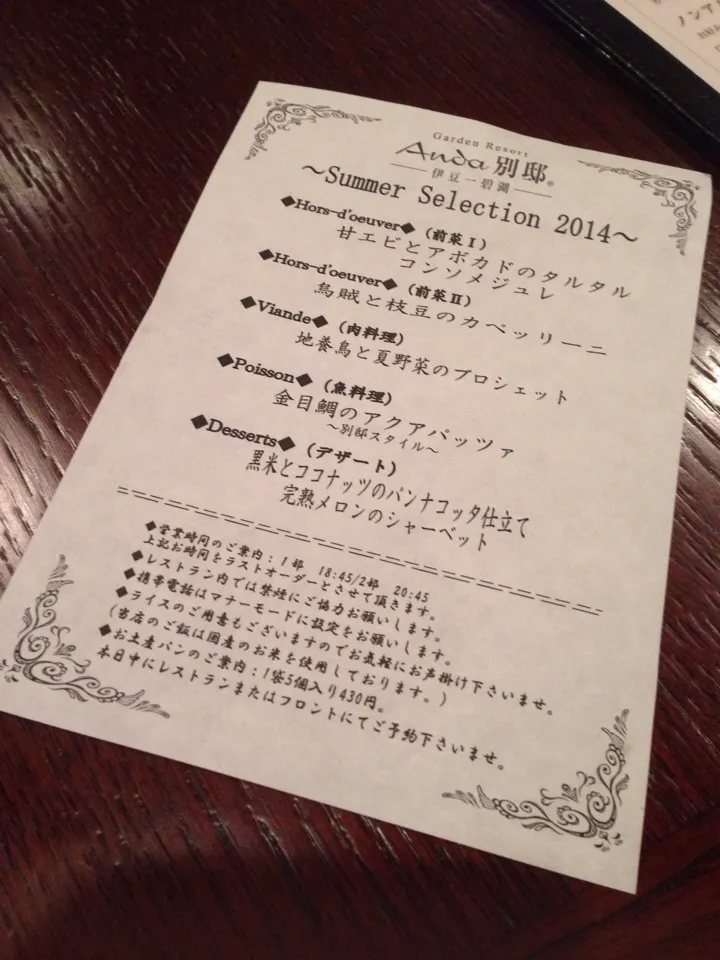 Garden Resort
Anda 別邸®
伊豆一碧湖
～Summer Selection 2014～
◆Hors-d'oeuver◆（前菜Ⅰ）
甘エビとアボカドのタルタル
コンソメジュレ
◆Hors-d'oeuver◆（前菜Ⅱ）
烏賊と枝豆のカペッリーニ
◆Viande◆（肉料理）
地養鳥と夏野菜のブロシェット
◆Poisson◆（魚料理）
金目鯛のアクアパッツァ
～別邸スタイル～
◆Desserts◆（デザート）
黒米とココナッツのパンナコッタ仕立て
完熟メロンのシャーベット
◆営業時間のご案内：1部 18:45/2部 20:45
上記お時間をラストオーダーとさせて頂きます。
◆レストラン内では禁煙にご協力お願いします。
◆携帯電話はマナーモードに設定をお願いします。
◆ライスのご用書もございますのでお気軽にお声掛け下さいませ。
（当店のご飯は国産のお米を使用しております。）
◆お土産パンのご案内：1袋5個入り430円。
本日中にレストランまたはフロントにてご予約下さいませ。
ノンア